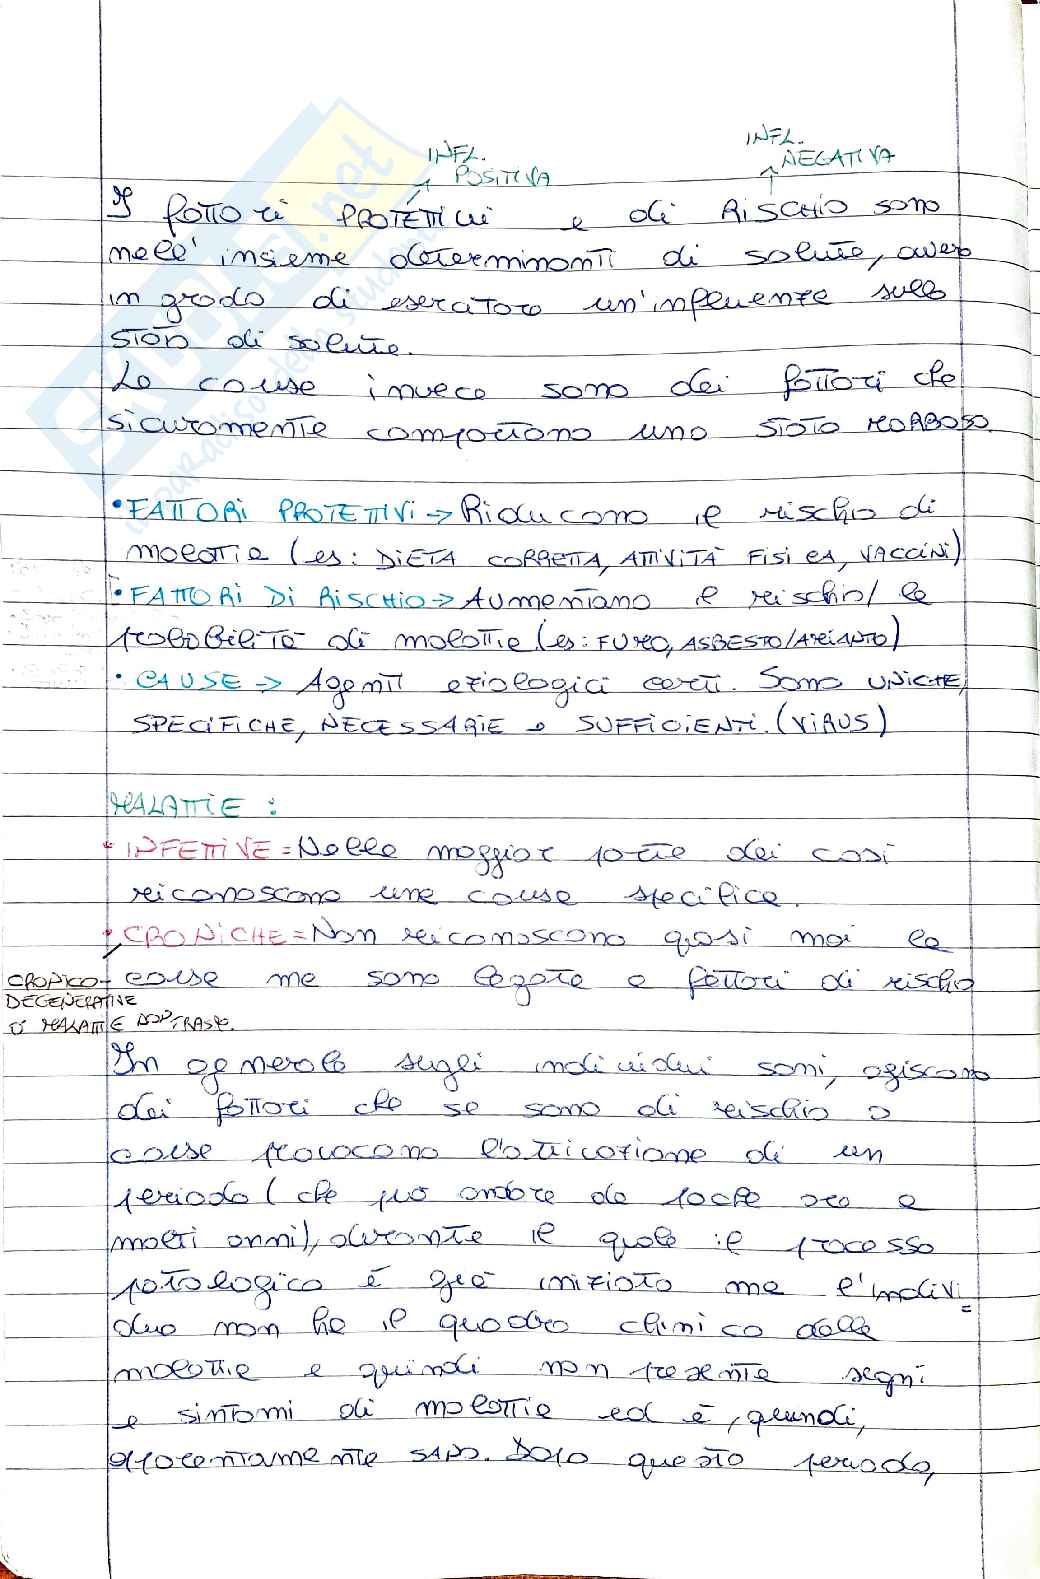 INFL.
POSITIVA
INFL.
NEGATIVA
I fattori PROTETTIVI e di RISCHIO sono
nell'insieme determinanti di salute, ovvero
in grado di esercitare un'influenza sullo
stato di salute.
Le cause invece sono dei fattori che
sicuramente comportano uno stato MORBOSO.
• FATTORI PROTETTIVI → Riducono il rischio di
malattia (es: DIETA CORRETTA, ATTIVITÀ FISICA, VACCINI)
• FATTORI DI RISCHIO → Aumentano il rischio/la
probabilità di malattie (es: FUMO, ASBESTO/AMIANTO)
• CAUSE → Agenti eziologici certi. Sono UNICHE,
SPECIFICHE, NECESSARIE e SUFFICIENTI. (VIRUS)
MALATTIE :
• INFETTIVE = Nella maggior parte dei casi
riconoscono una causa specifica.
• CRONICHE = Non riconoscono quasi mai la
causa ma sono legate a fattori di rischio
CRONICO-
DEGENERATIVE
MALATTIE
In generale sugli individui sani, agiscono
dei fattori che se sono di rischio o
cause provocano l'attivazione di un
periodo (che può andare da poche ore a
molti anni), durante il quale il processo
patologico è già iniziato ma l'indivi=
duo non ha il quadro clinico della
malattia e quindi non presenta segni
e sintomi di malattia ed è, quindi,
apparentemente SANO. Dopo questo periodo,
Skuola.net
il paradiso dello studente